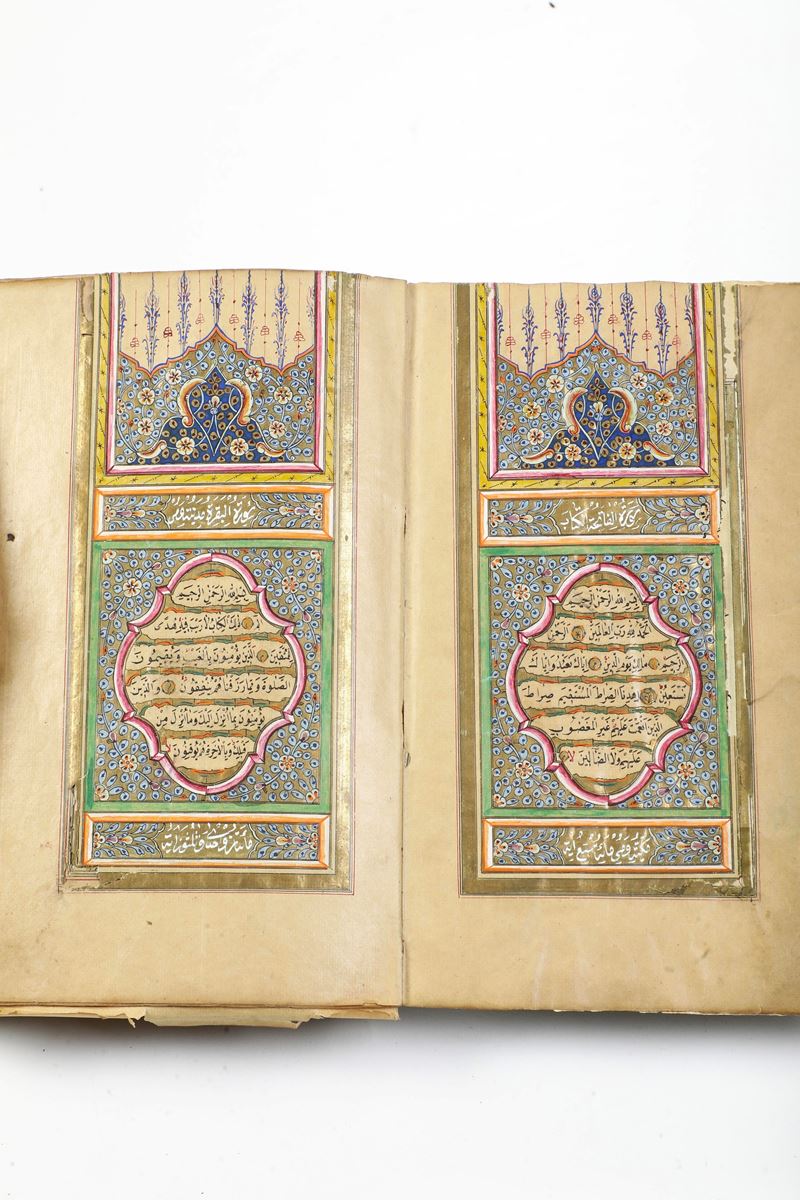 سورة الفاتحة الكتاب
بسم الله الرحمن الرحيم
الحمد لله رب العالمين الرحمن
الرحيم مالك يوم الدين اياك نعبد واياك
نستعين اهدنا الصراط المستقيم صراط
الذين انعمت عليهم غير المغضوب
عليهم ولا الضالين
مكية وهي سبع اية
سورة البقرة مدنية وهي
بسم الله الرحمن الرحيم
الم ذلك الكتاب لا ريب فيه هدى
للمتقين الذين يؤمنون بالغيب ويقيمون
الصلوة ومما رزقناهم ينفقون والذين
يؤمنون بما انزل اليك وما انزل من
قبلك وبالاخرة هم يوقنون
مائتان وست وثمانون اية